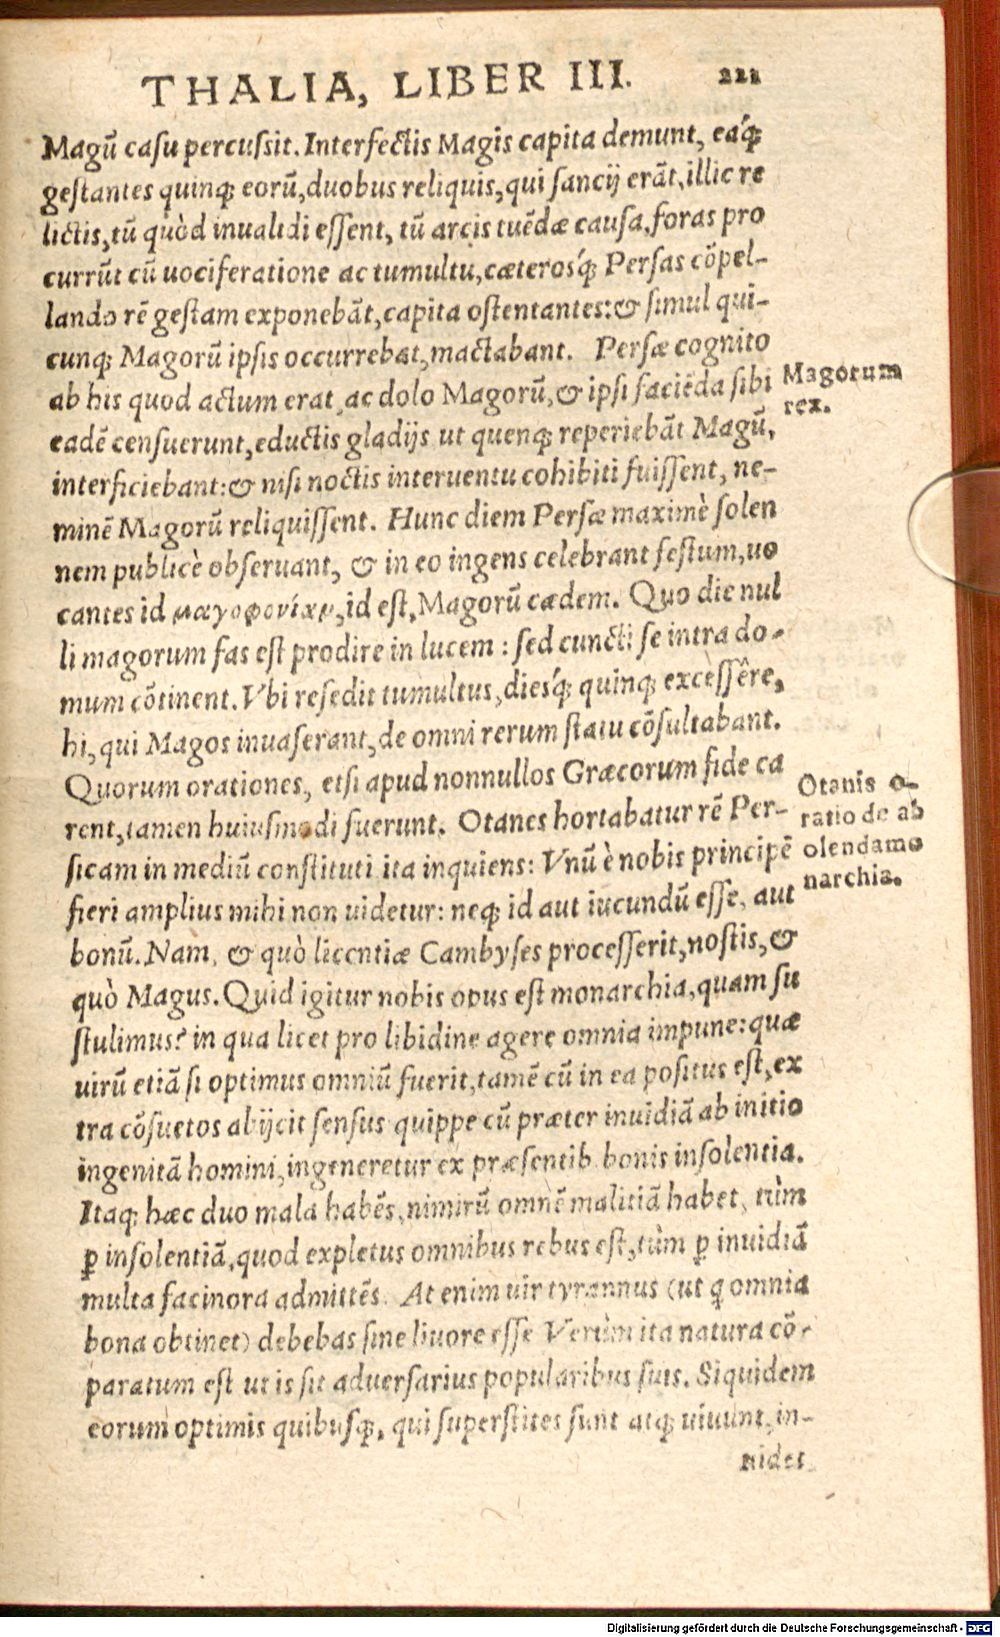 THALIA, LIBER III. 221
Magũ casu percussit. Interfectis Magis capita demunt, eáq;
gestantes quinq; eorũ, duobus reliquis, qui sancij erãt, illic re
lictis, tũ quòd inualidi essent, tũ arcis tuẽdæ causa, foras pro
currũt cũ uociferatione ac tumultu, cæterosq́; Persas cõpel-
lando rẽ gestam exponebãt, capita ostentantes: & simul qui-
cunq; Magorũ ipsis occurrebat, mactabant. Persæ cognito
ab his quod actum erat, ac dolo Magorũ, & ipsi faciẽda sibi
eadẽ censuerunt, eductis gladijs ut quenq; reperiebãt Magũ,
interficiebant: & nisi noctis interuentu cohibiti fuissent, ne-
minẽ Magorũ reliquissent. Hunc diem Persæ maximè solen
nem publicè obseruant, & in eo ingens celebrant festum, uo
cantes id μαγοφονίαν, id est, Magorũ cædem. Quo die nul
li magorum fas est prodire in lucem: sed cuncti se intra do-
mum cõtinent. Vbi resedit tumultus, diesq́; quinq; excessêre,
hi, qui Magos inuaserant, de omni rerum statu cõsultabant.
Quorum orationes, etsi apud nonnullos Græcorum fide ca
rent, tamen huiusmodi fuerunt. Otanes hortabatur rẽ Per-
sicam in mediũ constituti ita inquiens: Vnũ è nobis principẽ
fieri amplius mihi non uidetur: neq; id aut iucundũ esse, aut
bonũ. Nam, & quò licentiæ Cambyses processerit, nostis, &
quò Magus. Quid igitur nobis opus est monarchia, quam su
stulimus? in qua licet pro libidine agere omnia impune: quæ
uirũ etiã si optimus omniũ fuerit, tamẽ cũ in ea positus est, ex
tra cõsuetos abijcit sensus quippe cũ præter inuidiã ab initio
ingenitã homini, ingeneretur ex præsentib. bonis insolentia.
Itaq; hæc duo mala habẽs, nimirũ omnẽ malitiã habet, tùm
ꝑ insolentiã, quod expletus omnibus rebus est, tùm ꝑ inuidiã
multa facinora admittẽs. At enim uir tyrannus (ut q̃ omnia
bona obtinet) debebas sine liuore esse Verùm ita natura cõ-
paratum est ut is sit aduersarius popularibus suis. Siquidem
eorum optimis quibusq;, qui superstites sunt atq; uiuunt, in-
uidet
Magorum
rex.
Otanis o-
ratio de ab
olendamo
narchia.
Digitalisierung gefördert durch die Deutsche Forschungsgemeinschaft - DFG